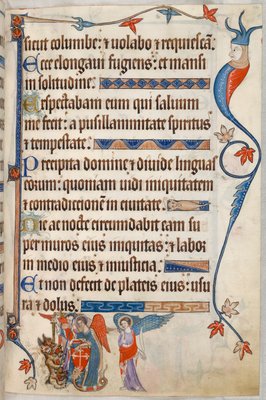 sicut columbe: & uolabo & requiescā.
Ecce elongaui fugiens: et mansi
in solitudine.
Exspectabam eum qui saluum
me fecit: a pusillanimitate spiritus
& tempestate.
Precipita domine & diuide linguas
eorum: quoniam uidi iniquitatem
& contradictionē in ciuitate.
Die ac nocte circumdabit eam su
per muros eius iniquitas: & labor
in medio eius & iniusticia.
Et non defecit de plateis eius: usu
ra & dolus.